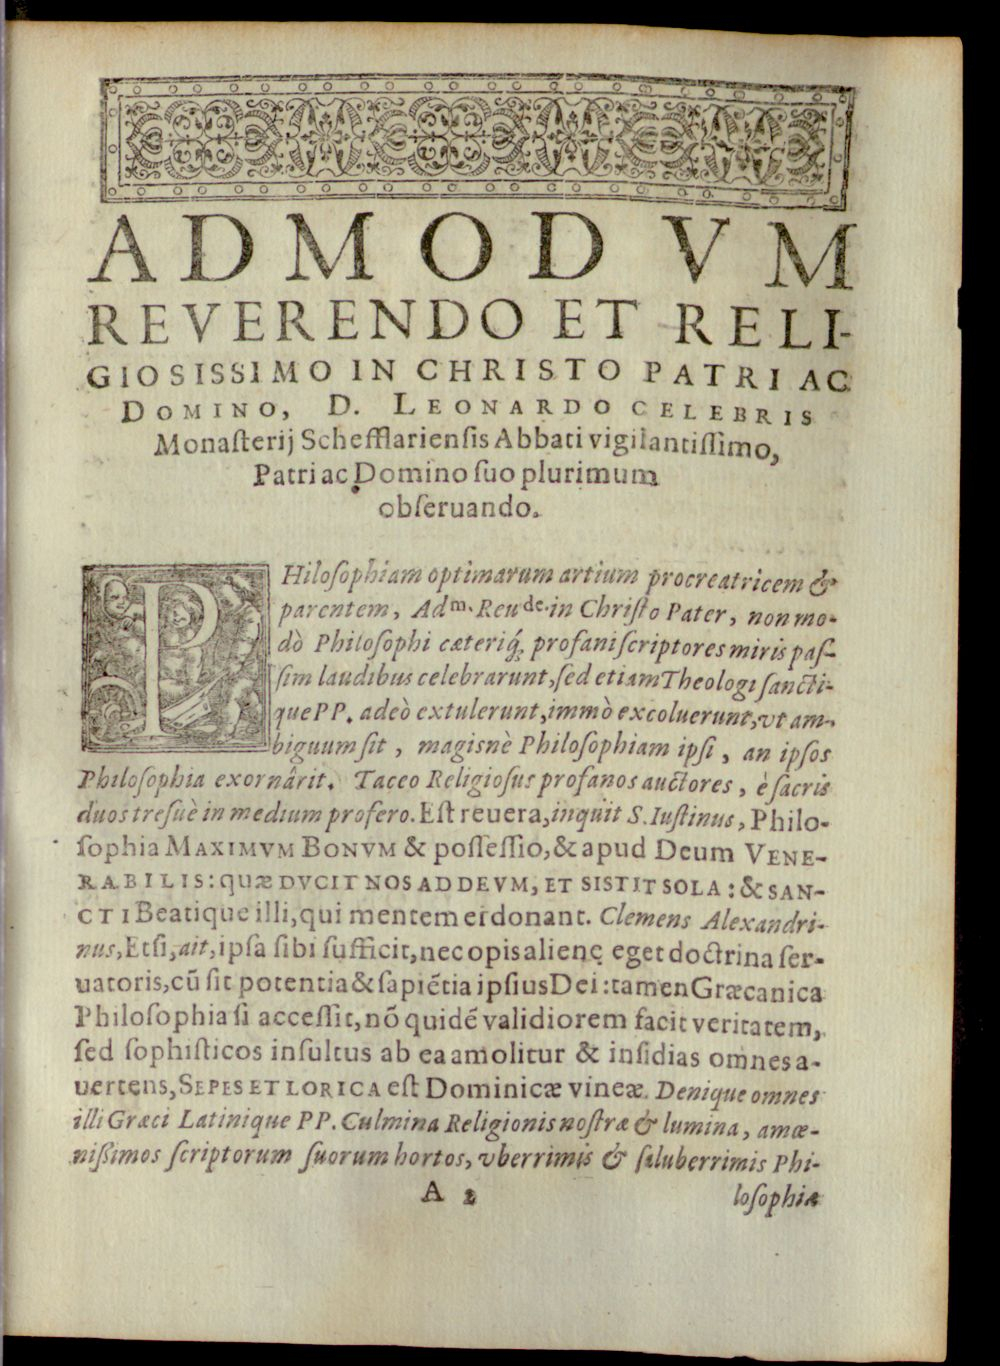 ADMODVM
REVERENDO ET RELI-
GIOSISSIMO IN CHRISTO PATRI AC
DOMINO, D. LEONARDO CELEBRIS
Monaſterij Schefflarienſis Abbati vigilantiſſimo,
Patri ac Domino ſuo plurimum
obſeruando.
PHiloſophiam optimarum artium procreatricem &
parentem, Adm. Reude. in Chriſto Pater, non mo-
dò Philoſophi cæteriq́; profani ſcriptores miris paſ-
ſim laudibus celebrarunt, ſed etiam Theologi ſancti-
que PP. adeò extulerunt, immò excoluerunt, vt am-
biguum ſit, magisnè Philoſophiam ipſi, an ipſos
Philoſophia exornârit. Taceo Religioſus profanos auctores, è ſacris
duos tresuè in medium profero. Eſt reuera, inquit S. Iuſtinus, Philo-
ſophia MAXIMVM BONVM & poſſeſſio, & apud Deum VENE-
RABILIS: quæ DVCIT NOS AD DEVM, ET SISTIT SOLA: & SAN-
CTI Beatique illi, qui mentem ei donant. Clemens Alexandri-
nus, Etſi, ait, ipſa ſibi ſufficit, nec opis alienę eget doctrina ſer-
uatoris, cū ſit potentia & ſapiētia ipſius Dei: tamen Græcanica
Philoſophia ſi acceſſit, nō quidē validiorem facit veritatem,
ſed ſophiſticos inſultus ab ea amolitur & inſidias omnes a-
uertens, SEPES ET LORICA eſt Dominicæ vineæ. Denique omnes
illi Græci Latinique PP. Culmina Religionis noſtræ & lumina, amœ-
nißimos ſcriptorum ſuorum hortos, vberrimis & ſaluberrimis Phi-
A 2 loſophiæ